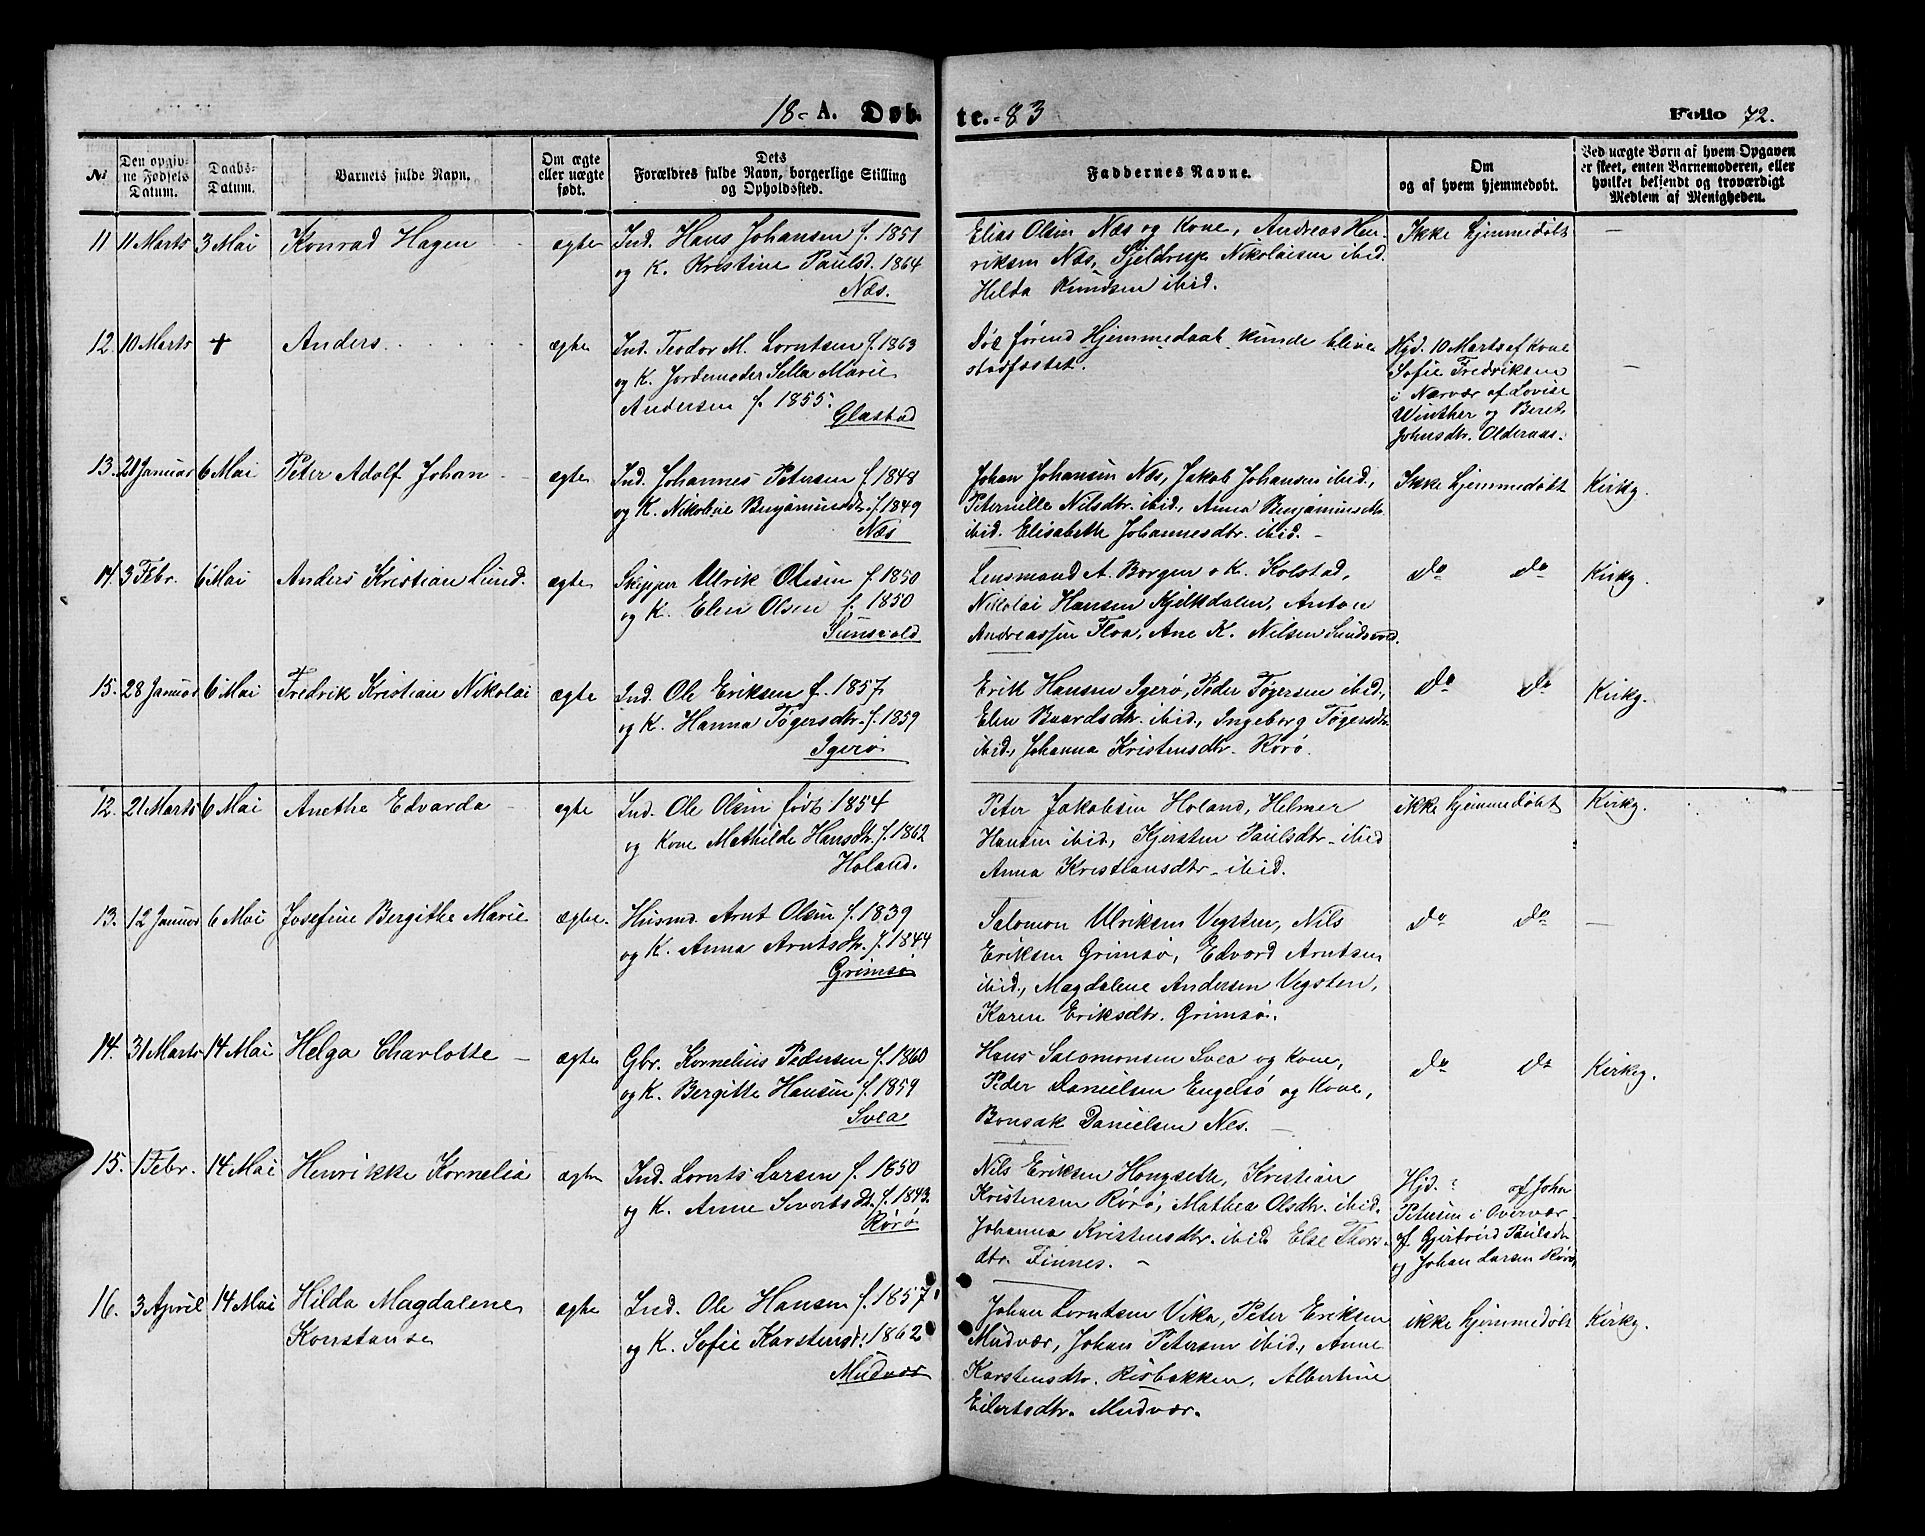 18- A. Døbte. -83
Folio 72.
No
Den opgivne Fødsels Datum.
Daabs-Datum.
Barnets fulde Navn.
Om ægte eller uægte født.
Dets Forældres fulde Navn, borgerlige Stilling og Opholdssted.
Faddernes Navne.
Om og af hvem hjemmedøbt.
Ved uægte Børn af hvem Opgaven er skeet, enten Barnemoderen, eller hvilket bekjendt og troværdigt Medlem af Menigheden.
11 11 Marts 3 Mai Konrad Hagen - ægte
Ind. Hans Johansen f. 1851
og K. Kristine Paulsd. 1864
Næs.
Elias Olsen Næs og Kone, Andreas Hen-
riksen Næs, Sjeldrup Nikolaisen ibid.
Hilda Knudsen ibid.
Ikke hjemmedøbt
-
12. 10 Marts + Anders ægte
Ind. Teodor M. Lorntsen f. 1863
og K. Jordemoder Sella Marie
Andersen f. 1855.
Glastad
Død førend Hjemmedaab kunde blive
stadfæstet.
Hjd. 10 Marts af Kone
Sofie Fredriksen
i Nærvær af Lovise
Winther og Beret
Johnsdtr. Olderaas.
-
13. 21 Januar 6 Mai Peter Adolf Johan - ægte
Ind. Johannes Petersen f. 1848
og K. Nikoline Benjaminsdtr. f. 1849
Næs
Johan Johansen Næs, Jakob Johansen ibid.,
Peternille Nilsdtr. ibid., Anna Benjaminsdtr.
ibid. Elisabeth Johannesdtr. ibid. -
Ikke hjemmedøbt
Kirkg.
14. 3 Febr. 6 Mai Anders Kristian Lund. ægte
Skipper Ulrik Olsen f. 1850
og K. Elen Olsen f. 1850
Sundsvold
Lensmand A. Borgen o K. Kolstad,
Nikolai Hansen Kjelkdalen, Anton
Andreassen Floa, Ane K. Nilsen Sundsvo.
do do
Kirkg.
15. 28 Januar 6 Mai Fredrik Kristian Nikolai ægte
Ind. Ole Eriksen f. 1857
og K. Hanna Tøgersdtr. f. 1859
Igerø
Erik Hansen Igerø, Peder Tøgersen ibid.,
Elen Baardsdtr. ibid., Ingeborg Tøgersdtr.
ibid., Johanna Kristensdtr. Rørø.
do do
Kirkg.
12. 21 Marts 6 Mai Anethe Edvarda - ægte
Ind. Ole Olsen født 1854
og Kone Mathilde Hansdtr. f. 1862
Holand.
Peter Jakobsen Holand, Helmer
Hansen ibid., Kjersten Paulsdtr. ibid
Anna Kristiansdtr. ibid.
ikke hjemmedøbt
Kirkg.
13. 12 Januar 6 Mai Josefine Bergithe Marie ægte.
Husmd. Arnt Olsen f. 1839
og K. Anna Arntsdtr. f. 1844
Grimsø
Salomon Ulriksen Vegsten, Nils
Eriksen Grimsø, Edvard Arntsen
ibid., Magdalene Andersen Vegsten,
Karen Eriksdtr. Grimsø.
do do
-
14. 31 Marts 14 Mai Helga Charlotte - ægte
Gbr. Kornelius Pedersen f. 1860
og K. Bergitte Hansen f. 1859
Svea
Hans Salomonsen Svea og Kone,
Peder Danielsen Engelsø og Kone,
Bonsak Danielsen Nes. -
do do
Kirkg.
15. 1 Febr. 14 Mai Henrikke Kornelia ægte
Ind. Lorents Larsen f. 1850
og K. Anne Sivertsdtr. f. 1843.
Rørø
Nils Eriksen Hongseth, Kristian
Kristensen Rørø, Mathea Olsdtr. ibid.
Johanna Kristensdtr. ibid. Else Thors-
dtr. Finnes. -
Hjd. ? af John
Petersen i Overvær
af Gjertrud Paulsdtr
og Johan Larsen Rørø,
16. 3 April 14 Mai Hilda Magdalene
Konstanse
ægte
Ind. Ole Hansen f. 1857
og K. Sofie Karstensdt. 1862
Mudvær
Johan Lorntsen Vika, Peter Eriksen
Mudvær, Johan Petersen ibid., Anne
Karstensdtr. Risbakken, Albertine
Eilertsdtr. Mudvær.
ikke hjemmedøbt
Kirkg.